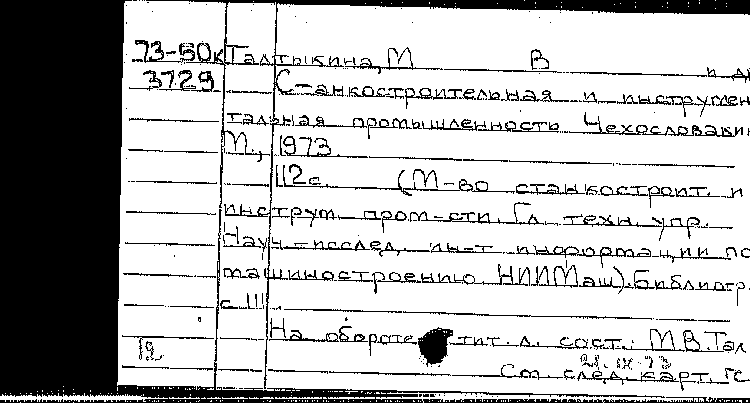 73-50к Талтыкина, М В и д
3729 Станкостроительная и инструмен
тальная промышленность Чехословакии
М., 1973.
112с. (М-во станкостроит. и
инструм. пром-сти. Гл. техн. упр.
Науч.-исслед. ин-т информации по
машиностроению. НИИМаш). Библиогр.
с. 111.
На обороте тит. л. сост.: М.В. Тал
19 21.IX-73
См. след. карт.